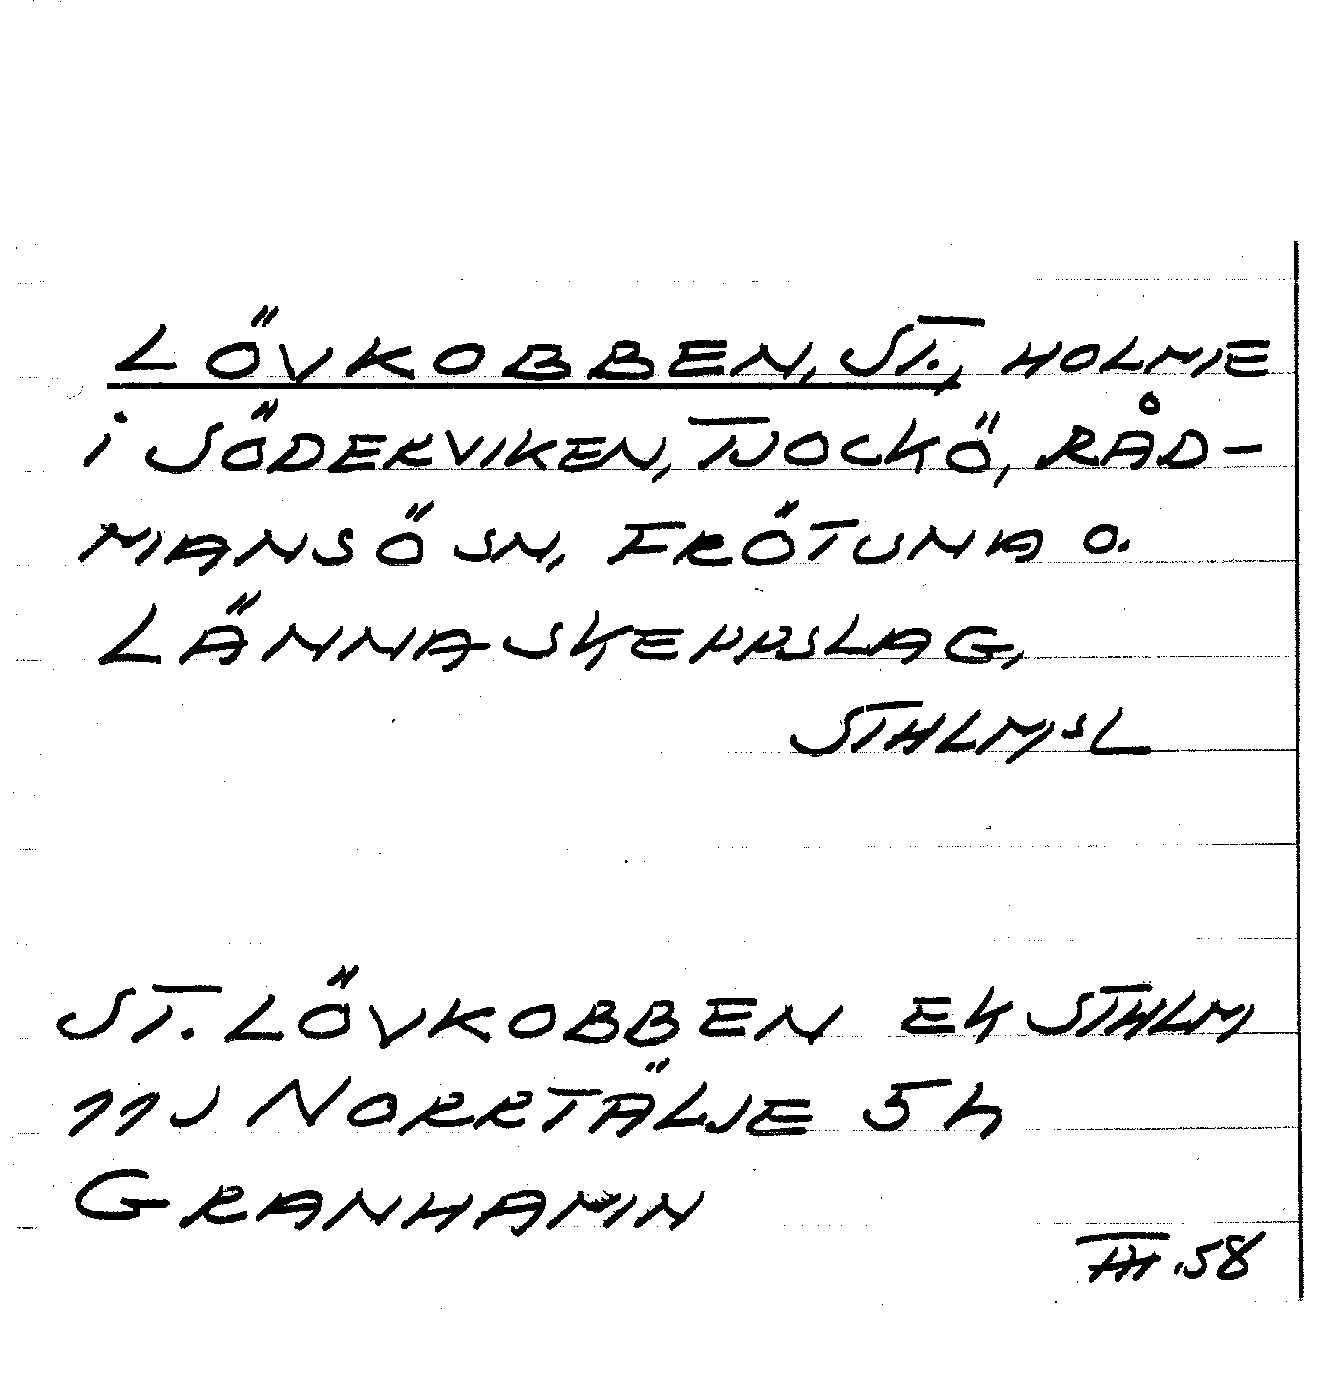 LÖVKOBBEN, ST., HOLME
i SÖDERVIKEN, TJOCKÖ, RÅD-
MANSÖ SN, FRÖTUNA O.
LÄNNA SKEPPSLAG,
STHLMSL
ST. LÖVKOBBEN EK STHLM
11J NORRTÄLJE 5h
GRANHAMN
TH .58